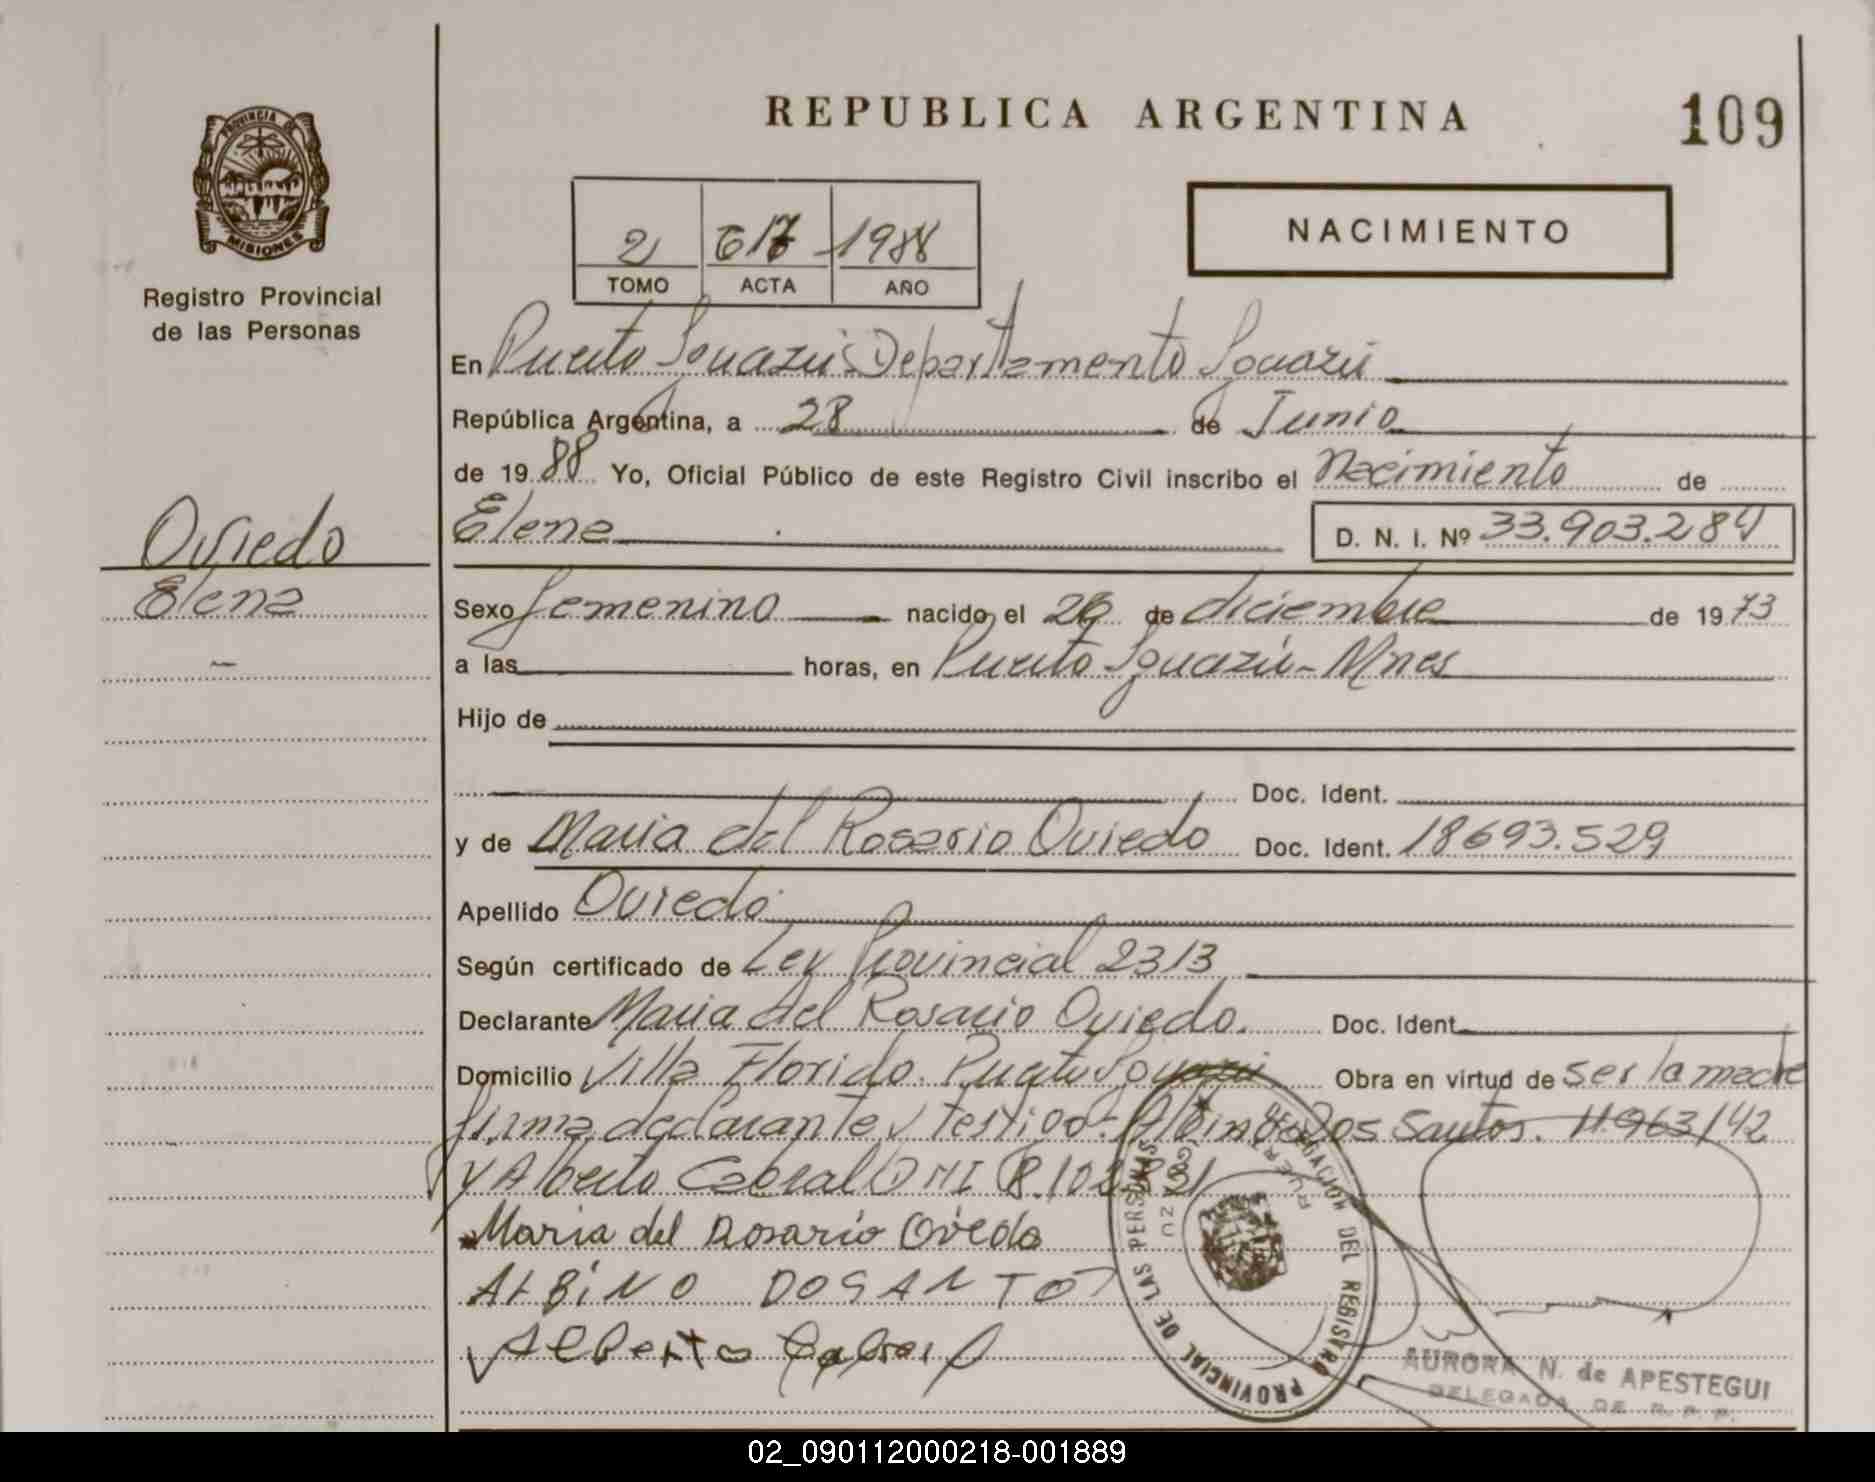 REPUBLICA ARGENTINA
109
PROVINCIA DE
MISIONES
Registro Provincial
de las Personas
2 617 1988
TOMO ACTA AÑO
NACIMIENTO
En Puerto Iguazú Departamento Iguazú
República Argentina, a 28 de Junio
de 1988 Yo, Oficial Público de este Registro Civil inscribo el Nacimiento de
Elena D. N. I. Nº 33.903.284
Oviedo
Elena
Sexo femenino nacido el 26 de diciembre de 1973
a las horas, en Puerto Iguazú - Mnes
Hijo de
Doc. Ident.
y de Maria del Rosario Oviedo Doc. Ident. 18693.529
Apellido Oviedo
Según certificado de Ley Provincial 2313
Declarante Maria del Rosario Oviedo. Doc. Ident
Domicilio Villa Florido. Puerto Iguazú Obra en virtud de ser la madre
firma declarante y testigo: Albino Dos Santos. 11963142
y Alberto Cabral DNI 8.102.
Maria del Rosario Ovedo
ALBiNO DOSANTO
Alberto Cabral
PROVINCIAL DE LAS PERSONAS
DELEGACION DEL REGISTRO
PUERTO IGUAZU
AURORA N. de APESTEGUI
DELEGADA DE R. P. P.
02_090112000218-001889